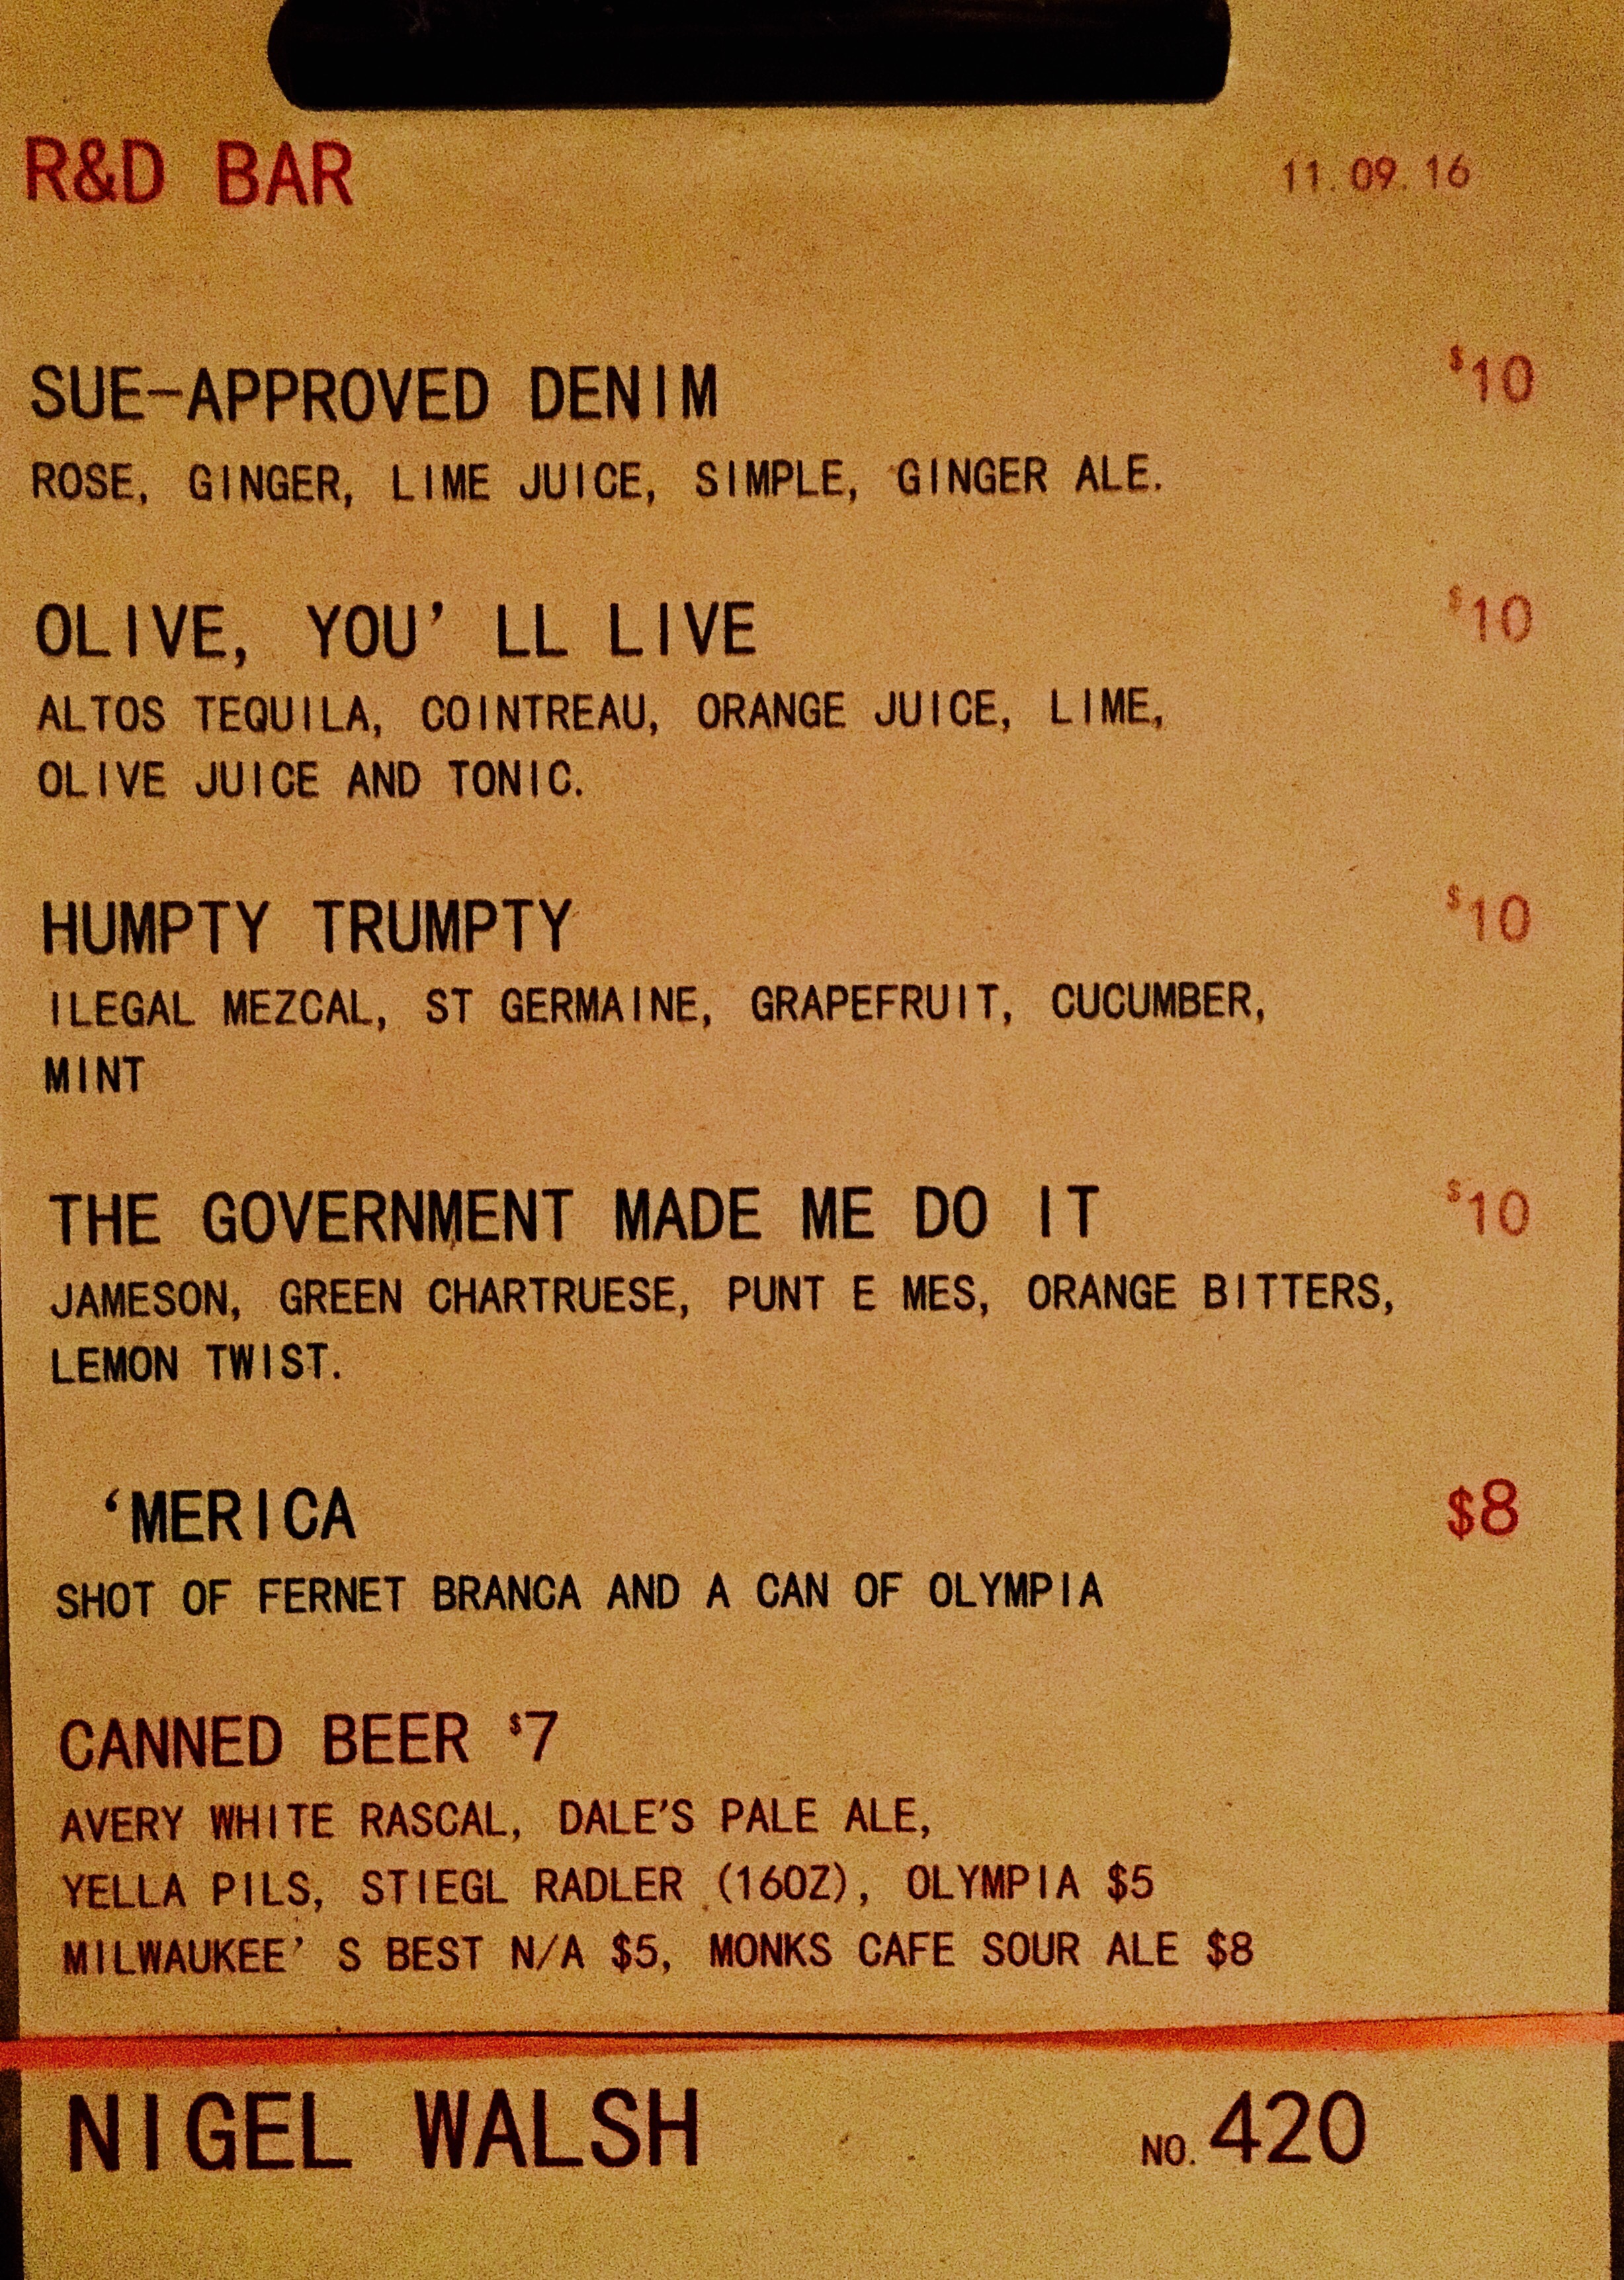 R&D BAR 11.09.16
SUE-APPROVED DENIM $10
ROSE, GINGER, LIME JUICE, SIMPLE, GINGER ALE.
OLIVE, YOU' LL LIVE $10
ALTOS TEQUILA, COINTREAU, ORANGE JUICE, LIME,
OLIVE JUICE AND TONIC.
HUMPTY TRUMPTY $10
ILEGAL MEZCAL, ST GERMAINE, GRAPEFRUIT, CUCUMBER,
MINT
THE GOVERNMENT MADE ME DO IT $10
JAMESON, GREEN CHARTRUESE, PUNT E MES, ORANGE BITTERS,
LEMON TWIST.
‘MERICA $8
SHOT OF FERNET BRANCA AND A CAN OF OLYMPIA
CANNED BEER $7
AVERY WHITE RASCAL, DALE'S PALE ALE,
YELLA PILS, STIEGL RADLER (16OZ), OLYMPIA $5
MILWAUKEE' S BEST N/A $5, MONKS CAFE SOUR ALE $8
NIGEL WALSH NO. 420